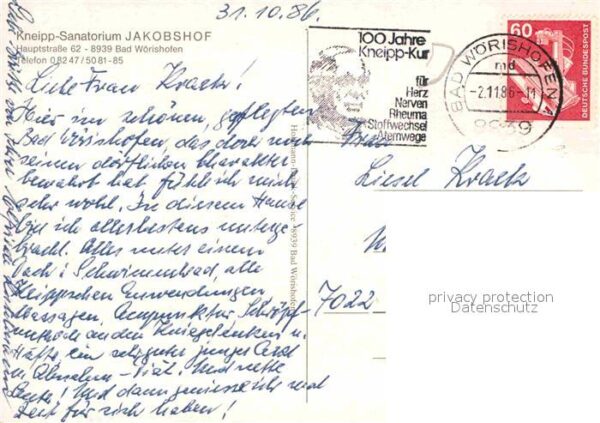 31.10.86.
Kneipp-Sanatorium JAKOBSHOF
Hauptstraße 62 - 8939 Bad Wörishofen
Telefon 08247/5081-85
Liebe Frau Krack!
Hier im schönen, gepflegten
Bad Wörishofen, das doch noch
seinen dörflichen Charakter
bewahrt hat, fühl ich mich
sehr wohl. In diesem Hause
bin ich allerbestens unterge-
bracht. Alles unter einem
Dach: Schwimmbad, alle
Kneippschen Anwendungen
Massagen, Acupunktur, Schröpf-
an den Kniegelenken u.
Hüfte, ein sehr guter junger Arzt
Abnahm-Diät. Und nette
Leute! Und dann geniesse ich mal
Zeit für sich haben!
100 Jahre
Kneipp-Kur
für
Herz
Nerven
Rheuma
Stoffwechsel
Atemwege
BAD WÖRISHOFEN 1
md
-2.11.86-11
8939
60
DEUTSCHE BUNDESPOST
Frau
Liesel Krack
7022
8939 Bad Wörishofen
privacy protection
Datenschutz